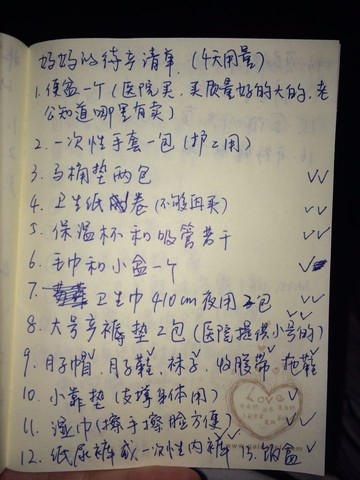 妈妈的待产清单(4天用量)
1.便盆一个(医院买,买质量好的大的,老
公知道哪里有卖)
2.一次性手套一包(护工用)
3.马桶垫两包 √√
4.卫生纸 卷(不够再买) √√
5.保温杯和吸管若干 √√
6.毛巾和小盆一个 √
7. 卫生巾410cm夜用 包 √√
8.大号产褥垫2包(医院提供小号的) √√
9.月子帽√,月子鞋√,袜子√,收腹带√,拖鞋√
10.小靠垫(支撑身体用) √
11.湿巾(擦手擦脸方便) √
12.纸尿裤或一次性内裤√ 13.饭盒√
Love